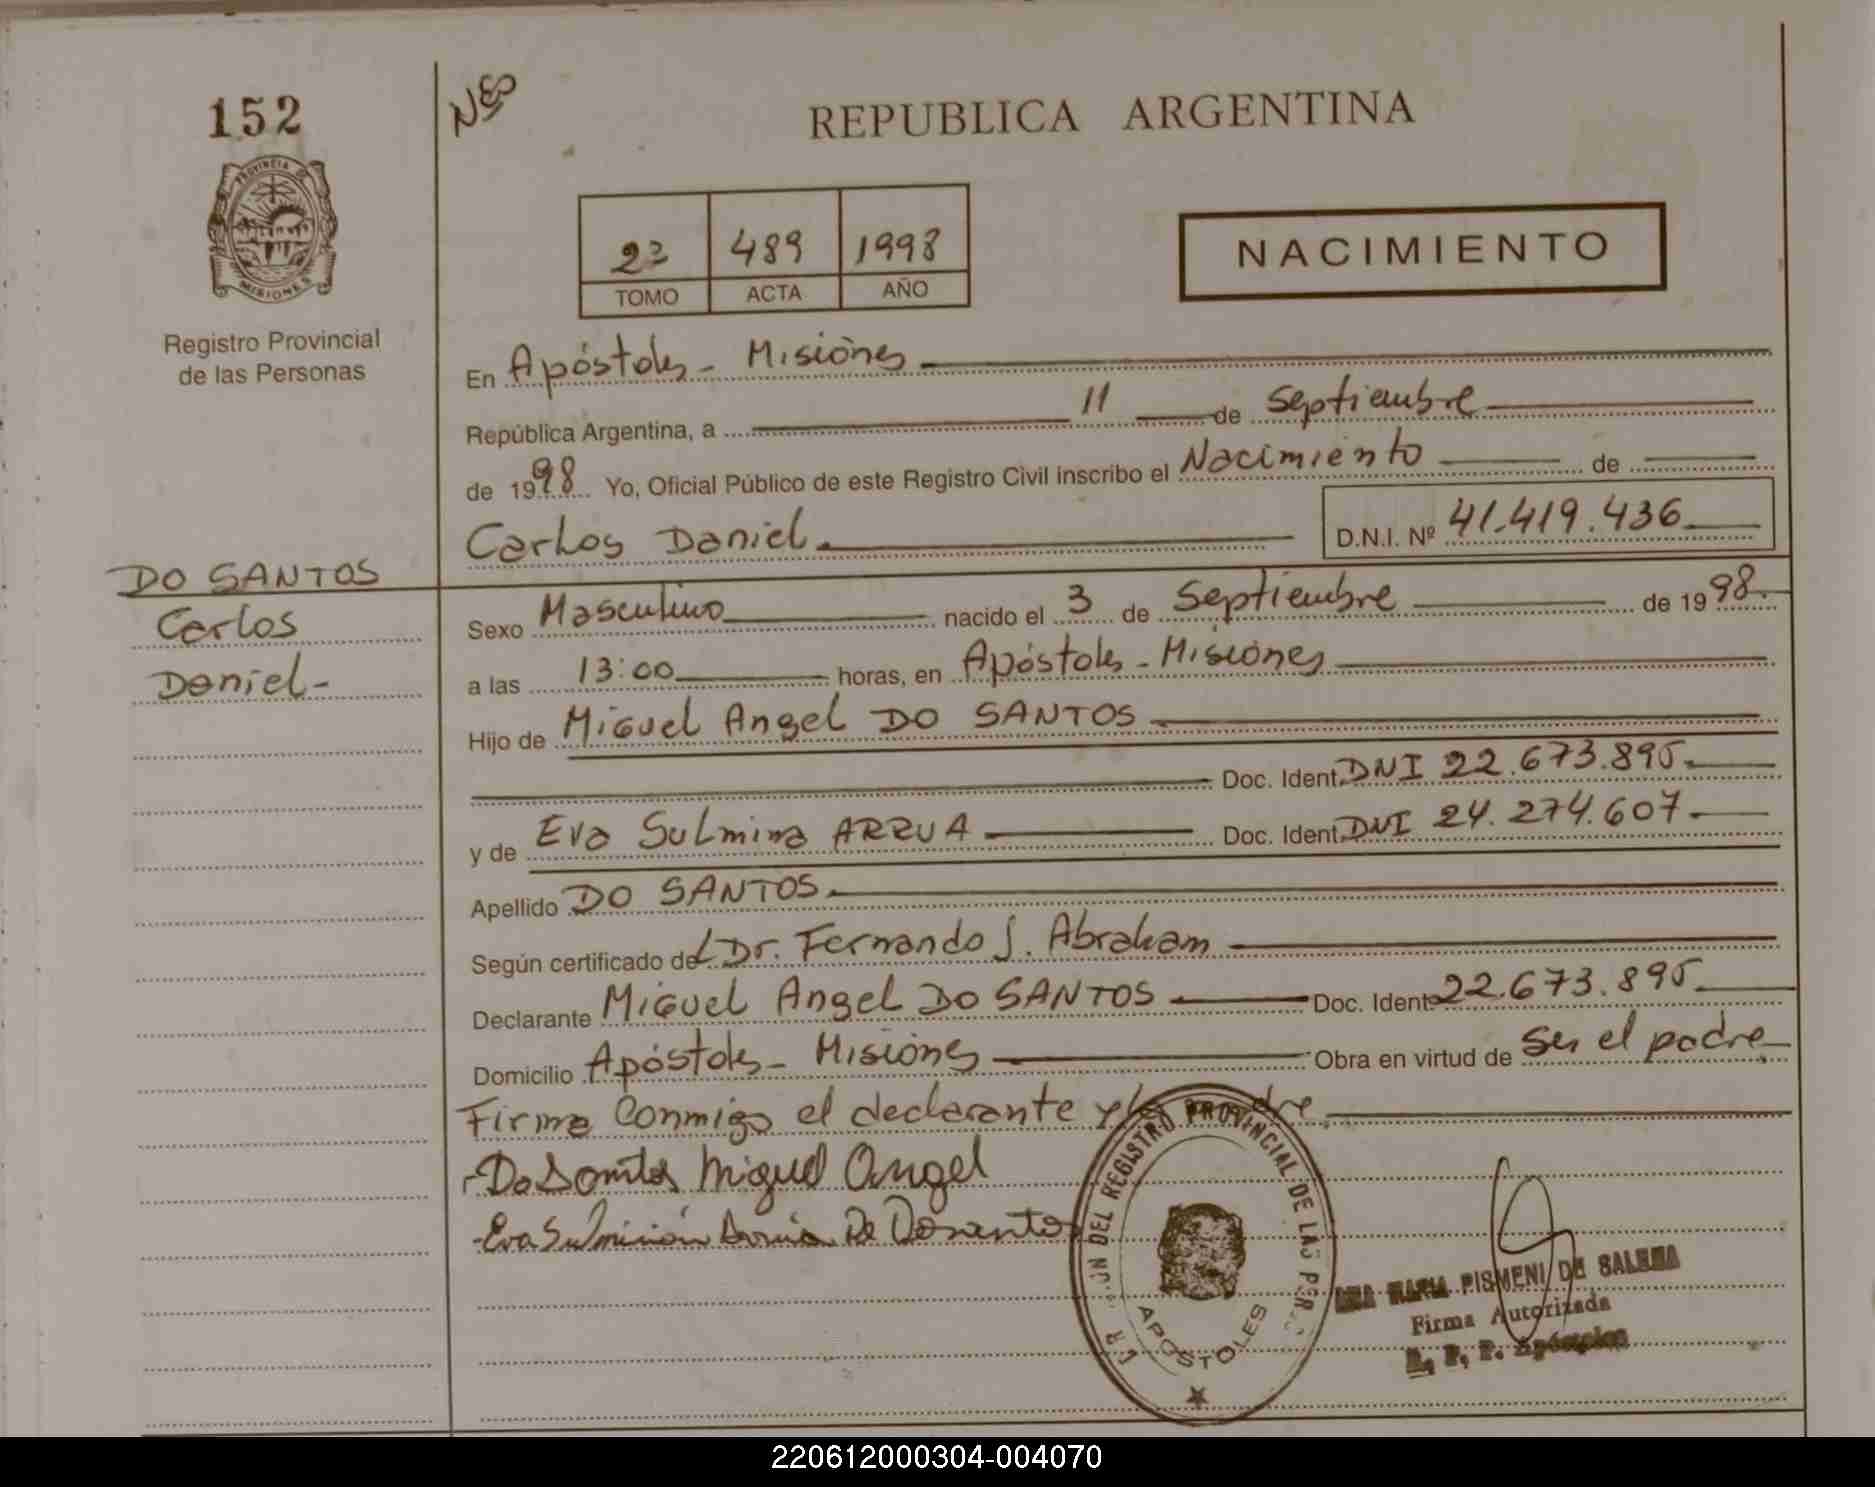 152
REPUBLICA ARGENTINA
PROVINCIA DE
MISIONES
Registro Provincial
de las Personas
23 489 1998
TOMO ACTA AÑO
NACIMIENTO
En Apóstoles - Misiones
República Argentina, a 11 de Septiembre
de 1998 Yo, Oficial Público de este Registro Civil inscribo el Nacimiento de
Carlos Daniel. D.N.I. Nº 41.419.436
DO SANTOS
Carlos
Daniel-
Sexo Masculino nacido el 3 de Septiembre de 1998.
a las 13:00 horas, en Apóstoles - Misiones
Hijo de Miguel Angel DO SANTOS
Doc. Ident. DNI 22.673.895.
y de Eva Sulmina ARRUA Doc. Ident. DNI 24.274.607.
Apellido DO SANTOS.
Según certificado del Dr. Fernando J. Abraham
Declarante Miguel Angel DO SANTOS Doc. Ident. 22.673.895.
Domicilio Apóstoles - Misiones Obra en virtud de ser el padre.
Firma conmigo el declarante y
-Do Santos Miguel Angel
-Eva De Dosanto
DEL REGISTRO PROVINCIAL DE LAS
APOSTOLES
MARIA PISMENI DE
Firma Autorizada
R. P. P. Apóstoles
220612000304-004070